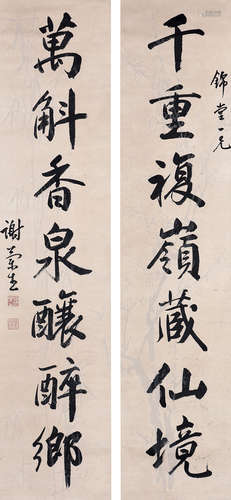 錦堂一兄
千重複嶺藏仙境
萬斛香泉釀醉鄉
謝蘭生